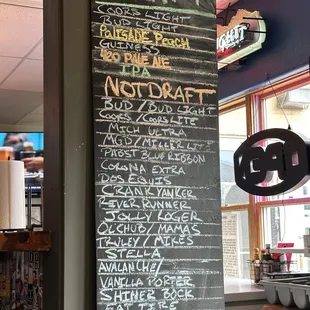 COORS LIGHT
BUD LIGHT
PALISADE PEACH
GUINESS
420 PALE ALE
IPA
NOT DRAFT
BUD / BUD LIGHT
COORS / COORS LITE
MICH ULTRA
MGD / MILLER LITE
PABST BLUE RIBBON
CORONA EXTRA
DOS EQUIS
CRANK YANKER
RIVER RUNNER
JOLLY ROGER
OLCHUB / MAMAS
TRULEY / MIKES
STELLA
AVALANCHE /
VANILLA PORTER
SHINER BOCK
FAT TIRE